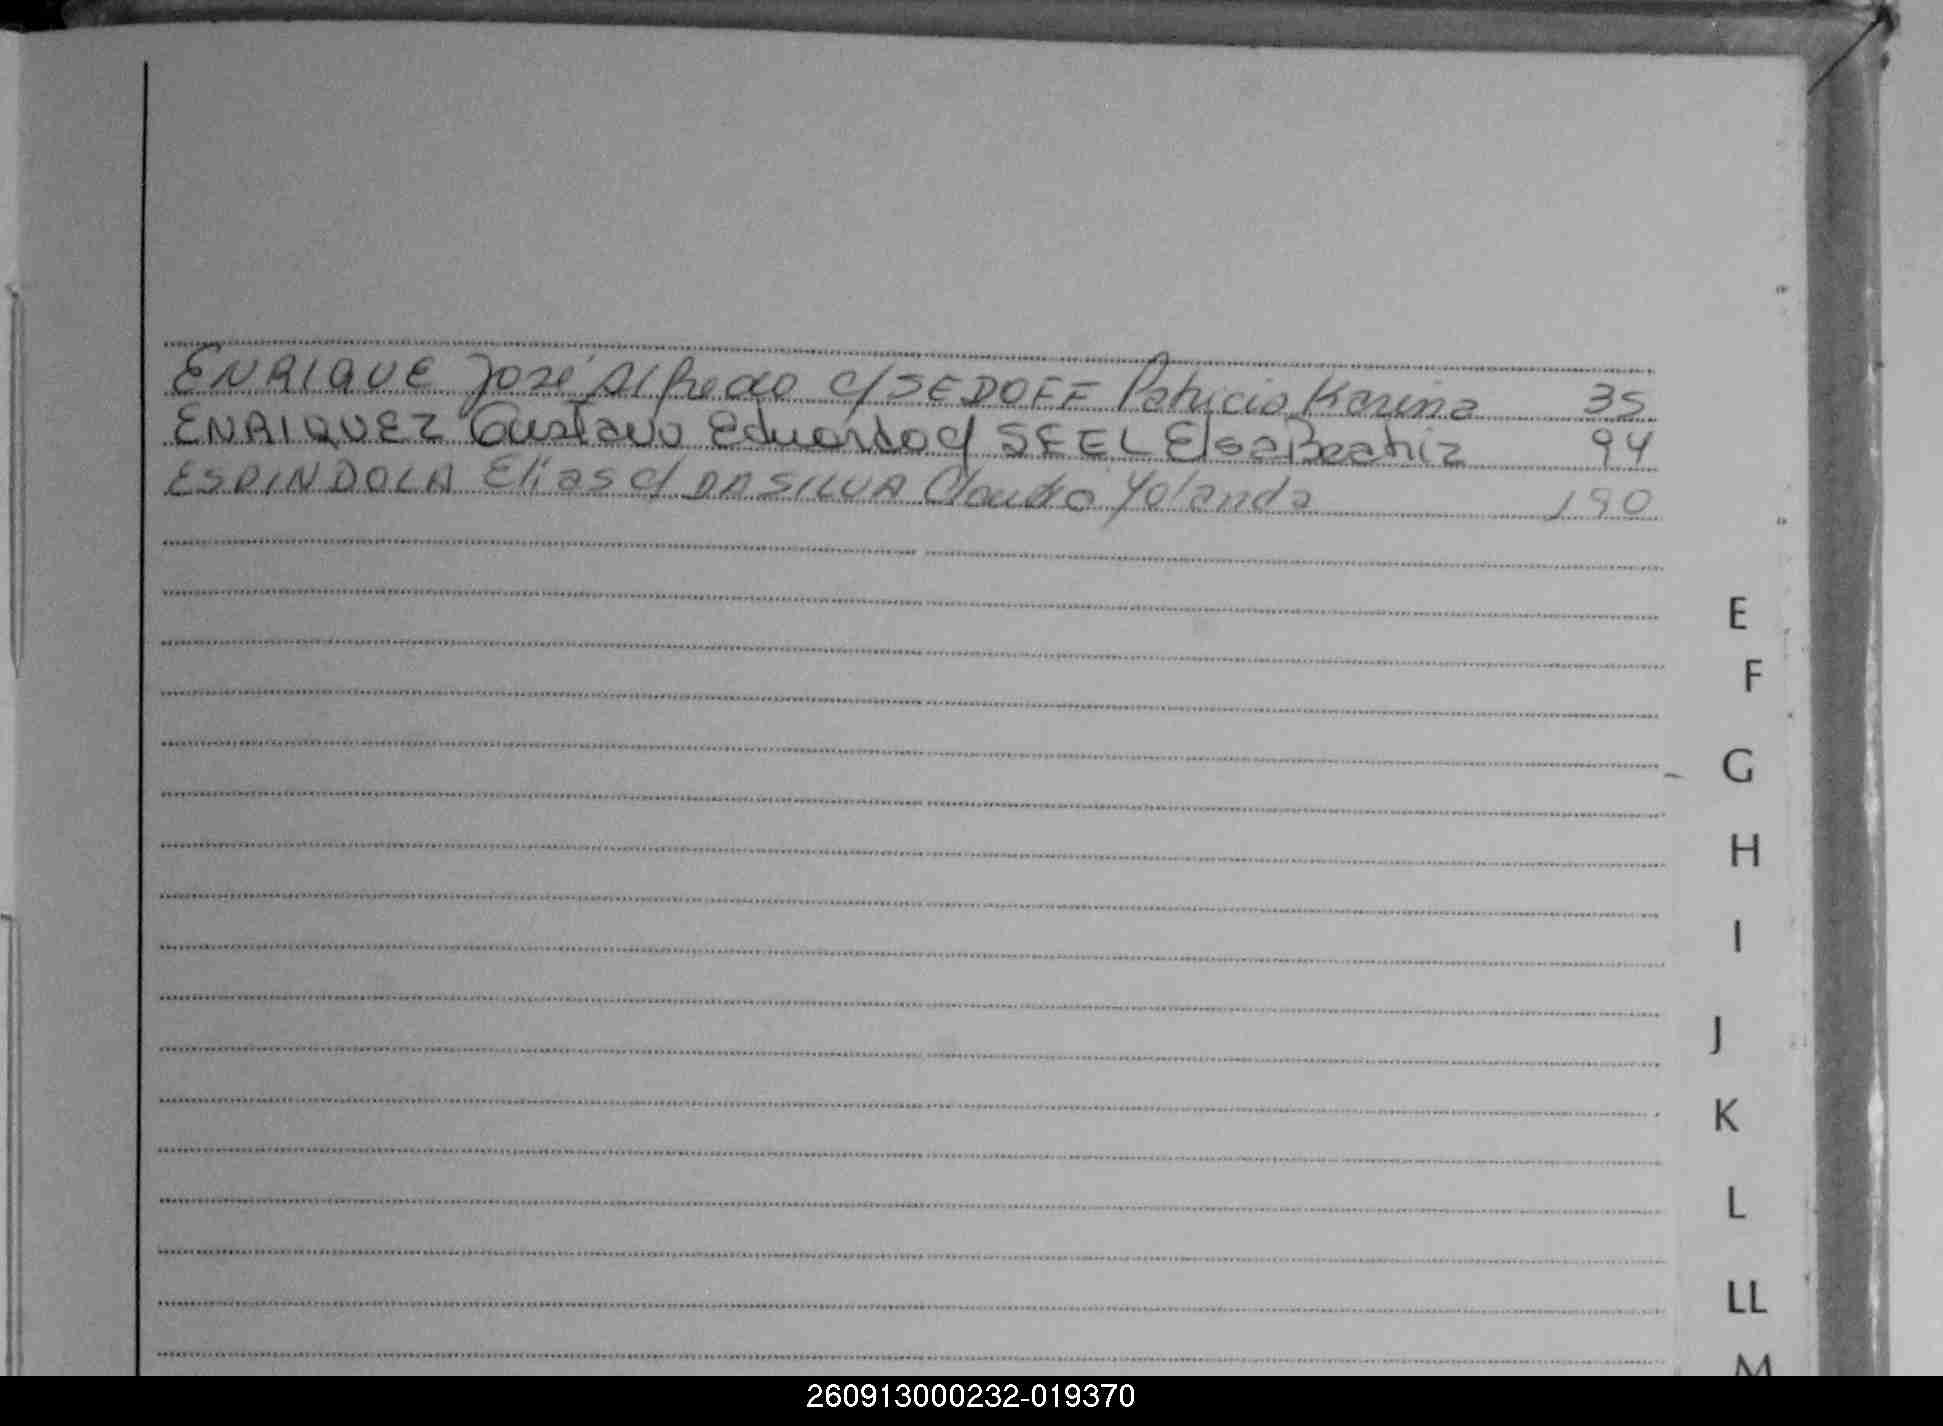 ENRIQUE José Alfredo c/ SEDOFF Patricia Karina 35
ENRIQUEZ Gustavo Eduardo c/ SEEL Elsa Beatriz 94
ESPINDOLA Elias c/ DA SILVA Claudia Yolanda 190
E
F
G
H
I
J
K
L
LL
M
260913000232-019370